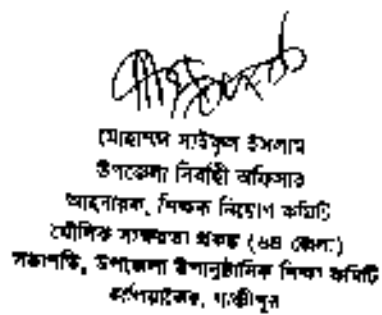 মোহাম্মদ সাইফুল ইসলাম
উপজেলা নির্বাহী অফিসার
আহবায়ক, শিক্ষক নিয়োগ কমিটি
মৌলিক সাক্ষরতা প্রকল্প (৬৪ জেলা)
সভাপতি, উপজেলা উপানুষ্ঠানিক শিক্ষা কমিটি
গাজীপুর